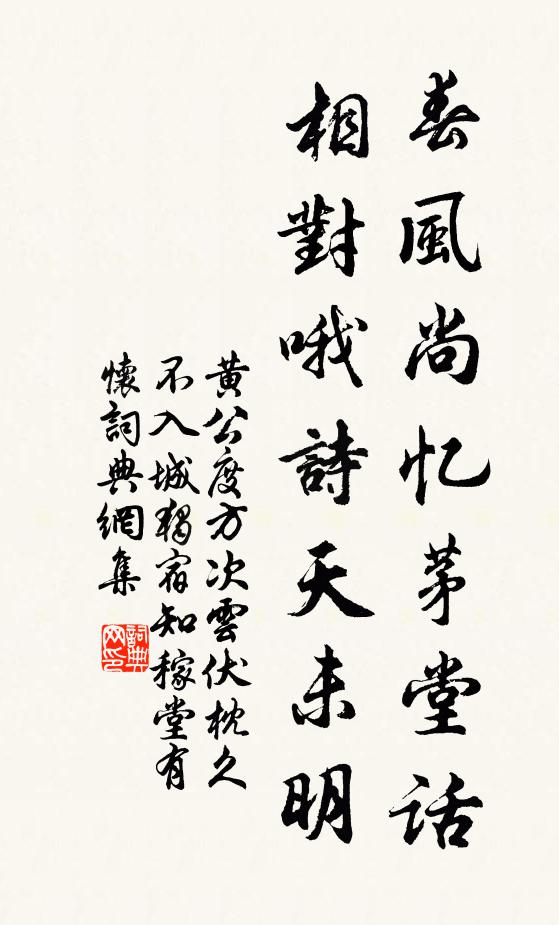 春風尚忆茅堂话
相對哦詩天未明
黄公度方次雲伏枕久
不入城獨宿知稼堂有
懷詞典網集
詞典
网印